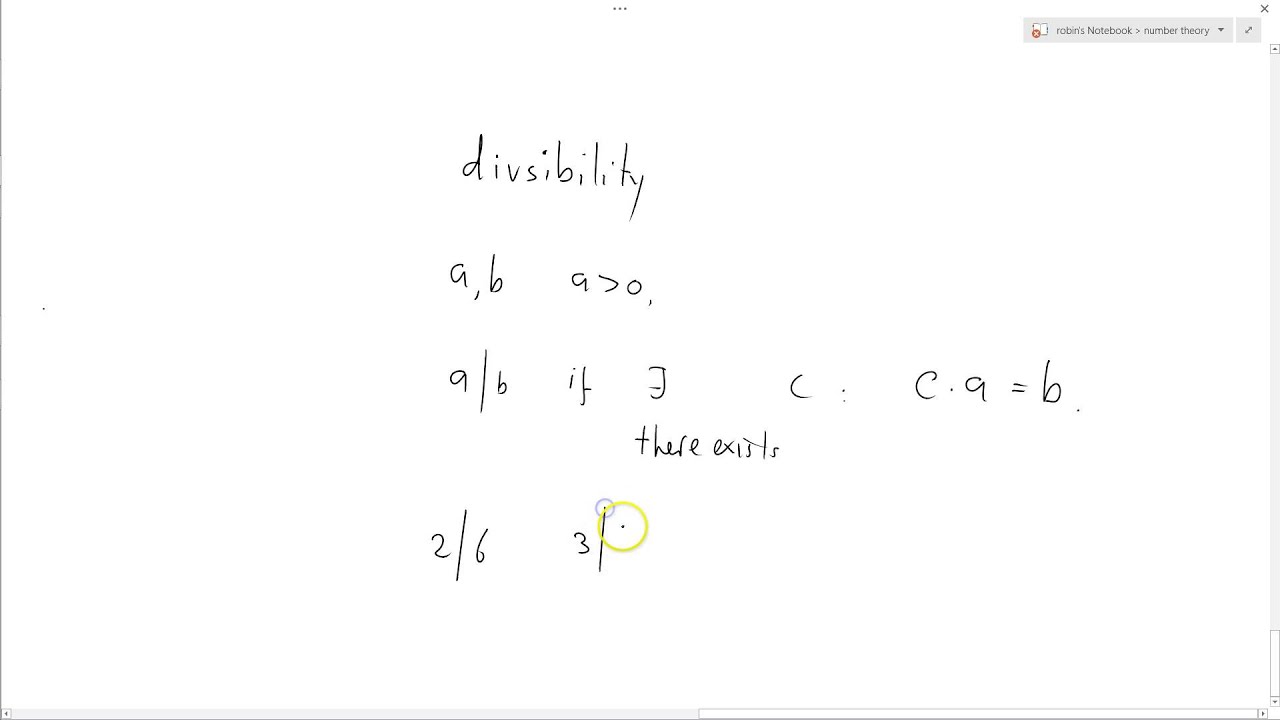 ...
robin's Notebook > number theory
divsibility
a, b a>0,
a|b if ∃ c : c.a = b.
there exists
2|6 3|